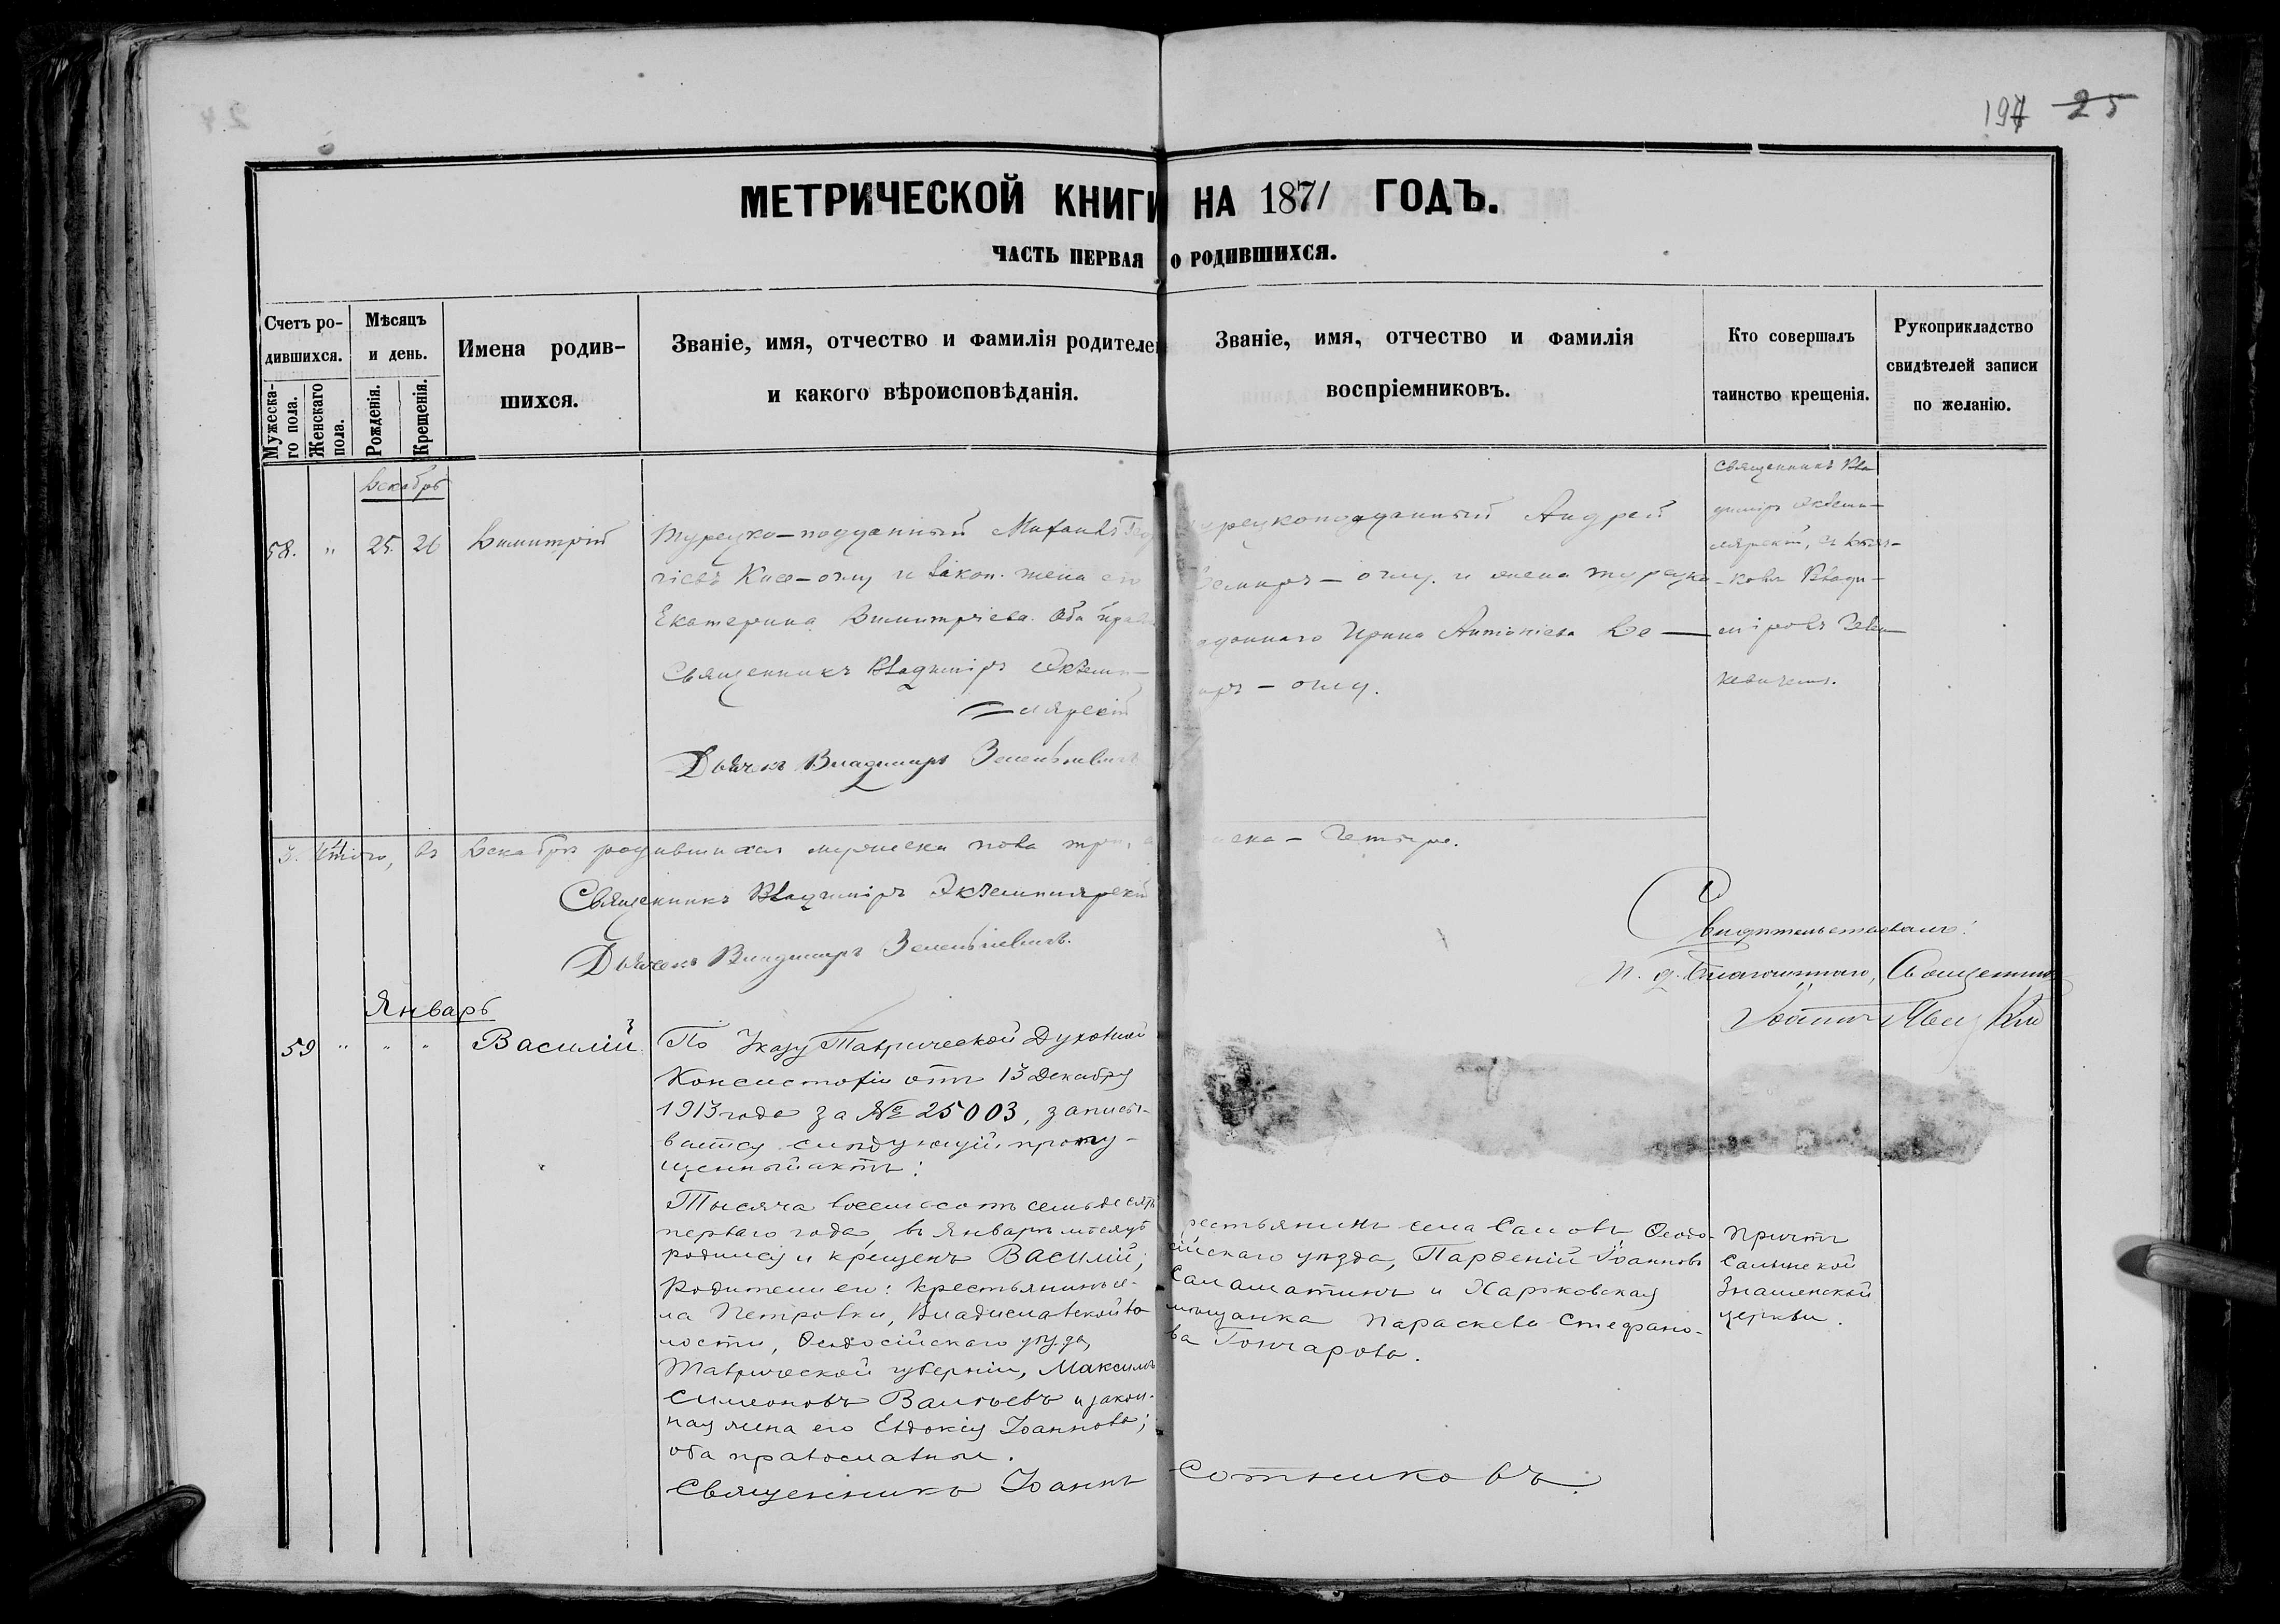 197 25
МЕТРИЧЕСКОЙ КНИГИ НА 1871 ГОДЪ.
ЧАСТЬ ПЕРВАЯ О РОДИВШИХСЯ.
Счетъ ро-
дившихся.
Мужеска-
го пола.
Женскаго
пола.
Мѣсяцъ
и день.
Рожденія.
Крещенія.
Имена родив-
шихся.
Званіе, имя, отчество и фамилія родителей
и какого вѣроисповѣданія.
Званіе, имя, отчество и фамилія
воспріемниковъ.
Кто совершалъ
таинство крещенія.
Рукоприкладство
свидѣтелей записи
по желанію.
Декабрь
58. " 25. 26 Димитрій
Турецко-подданный
и закон. жена его
Екатерина Димитріева. Оба прав
Священникъ Владиміръ Экземп-
=лярскій
Дьячекъ Владимиръ
рецкоподданный Андрей
Демиръ-оглу. и жена турецко
подданнаго Ирина Антоніева Де-
миръ-оглу.
Священникъ Вла
диміръ Экземп-
лярскій, съ дьяч-
комъ Влади-
міромъ
Итого, въ Декабрѣ родившихся мужеска пола три, женска - четыре.
Священникъ Владиміръ Экземплярскій
Дьячекъ Владимиръ
Свидѣтельствовалъ:
и. д. Благочиннаго, Священникъ
Іоаннъ
Январь
59 " " " Василій.
По Указу Таврической Духовной
Консисторіи отъ 13 Декабря
1913 года за № 25003, записы-
вается слѣдующій пропу-
щенный актъ:
Тысяча восемьсотъ семьдесятъ
перваго года, въ Январѣ мѣсяцѣ
родился и крещенъ Василій;
Родители его: крестьянинъ се-
ла Петровки, Владиславской во
лости, Ѳеодосійскаго уѣзда,
Таврической губерніи, Максимъ
Симеоновъ Валтьевъ и закон-
ная жена его Евдокія Іоаннова;
оба православные.
Священникъ Іоаннъ Сотниковъ.
рестьянинъ села Саловъ Ѳеодо-
сійскаго уѣзда, Парѳеній Іоанновъ
Саламатинъ и Харьковская
мѣщанка Параскева Стефано-
ва Гончарова.
Причтъ
Салынской
Знаменской
церкви.